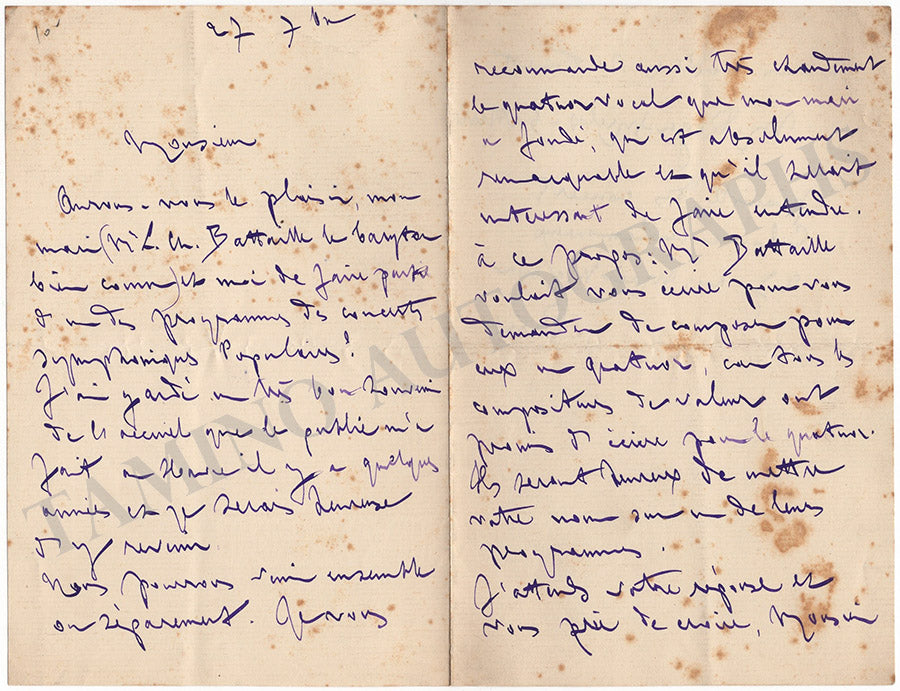 27 7bre
Monsieur
Aurons-nous le plaisir, mon
mari (Mr L. Ch. Battaille le baryton
bien connu) et moi de faire partie
d'un des programmes des concerts
symphoniques Populaires!
J'ai gardé un très bon souvenir
de l'accueil que le public m'a
fait au Havre il y a quelques
années et je serais heureuse
d'y revenir.
Nous pourrons venir ensemble
ou séparément. Je vous
recommande aussi très chaudement
le quatuor vocal que mon mari
a fondé, qui est absolument
remarquable et qu'il serait
intéressant de faire entendre.
à ce propos: Mr Battaille
voulait vous écrire pour vous
demander de composer pour
eux un quatuor, car tous les
compositeurs de valeur ont
promis d'écrire pour le quatuor.
Ils seront heureux de mettre
votre nom sur un de leurs
programmes.
J'attends votre réponse et
vous prie de croire, Monsieur
TAMINO AUTOGRAPHS